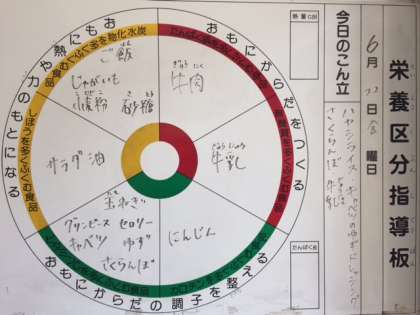 栄養区分指導板
6月22日金曜日
今日のこん立
ハヤシライス キャベツのゆずドレッシング
さくらんぼ 牛乳
熱量cal
たんぱく質
おもにからだをつくる
たんぱく質を多くふくむ食品
ぎゅうにく
牛肉
無機質を多くふくむ食品
ぎゅうにゅう
牛乳
おもにからだの調子を整える
カロテンを多くふくむ食品
にんじん
玉ねぎ
グリンピース セロリー
キャベツ ゆず
さくらんぼ
おもに熱や力のもとになる
しぼうを多くふくむ食品
サラダ油
炭水化物を多くふくむ食品
ご飯
じゃがいも
砂糖